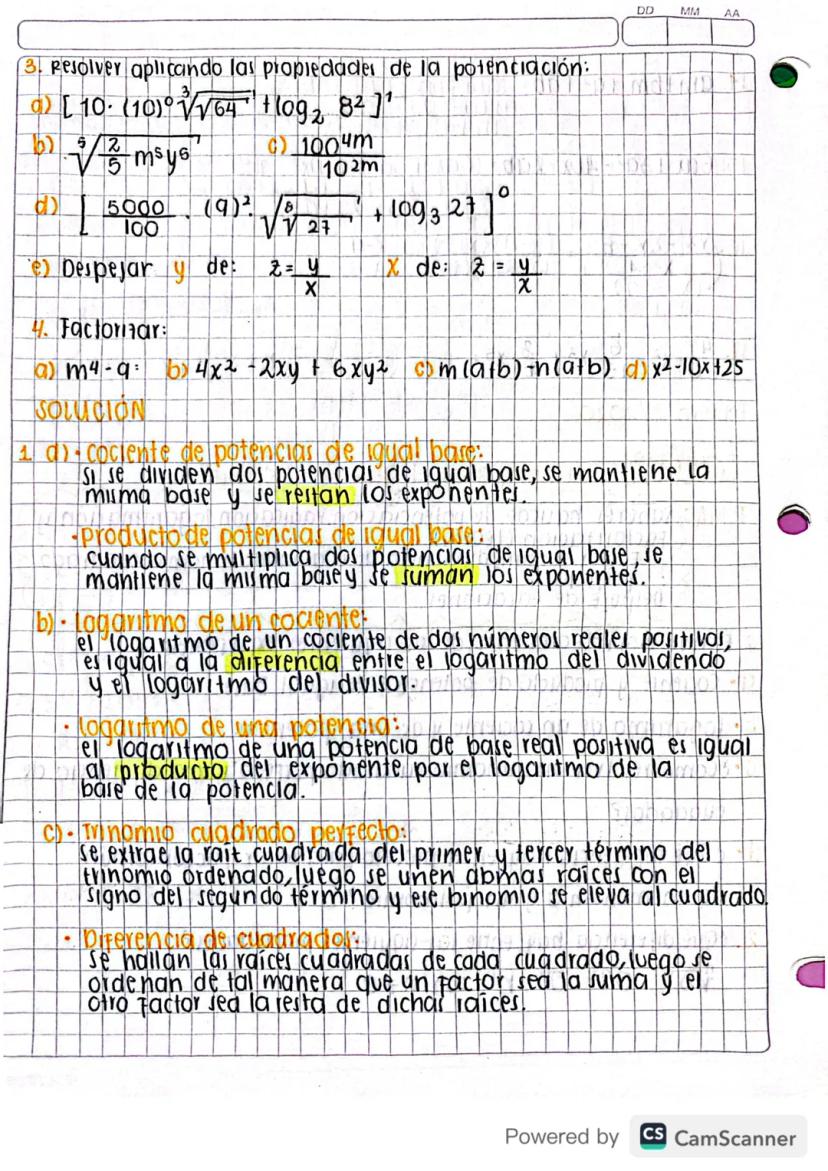 DD MM AA
3. Resolver aplicando las propiedades de la potenciación:
a) [10· (10)⁰ ∛√64 + log₂ 8²]¹
b) ⁵√(2/5 m⁵y⁶) c) 100⁴ᵐ/10²ᵐ
d) [5000/100 · (9)²· √⁶√27 + log₃ 27]⁰
e) Despejar y de: z = y/x x de: z = y/x
4. Factorizar:
a) m⁴ - 9: b) 4x² - 2xy + 6xy² c) m(a+b)-n(a+b) d) x²-10x+25
SOLUCIÓN
1 a) · cociente de potencias de igual base:
si se dividen dos potencias de igual base, se mantiene la
misma base y se restan los exponentes.
· producto de potencias de igual base:
cuando se multiplica dos potencias de igual base, se
mantiene la misma base y se suman los exponentes.
b) · logaritmo de un cociente:
el logaritmo de un cociente de dos números reales positivos,
es igual a la diferencia entre el logaritmo del dividendo
y el logaritmo del divisor.
· logaritmo de una potencia:
el logaritmo de una potencia de base real positiva es igual
al producto del exponente por el logaritmo de la
base de la potencia.
c) · Trinomio cuadrado perfecto:
se extrae la raíz cuadrada del primer y tercer término del
trinomio ordenado, luego se unen abmas raíces con el
signo del segundo término y ese binomio se eleva al cuadrado.
· Diferencia de cuadrados:
se hallan las raíces cuadradas de cada cuadrado, luego se
ordenan de tal manera que un factor sea la suma y el
otro factor sea la resta de dichas raíces.
Powered by CS CamScanner